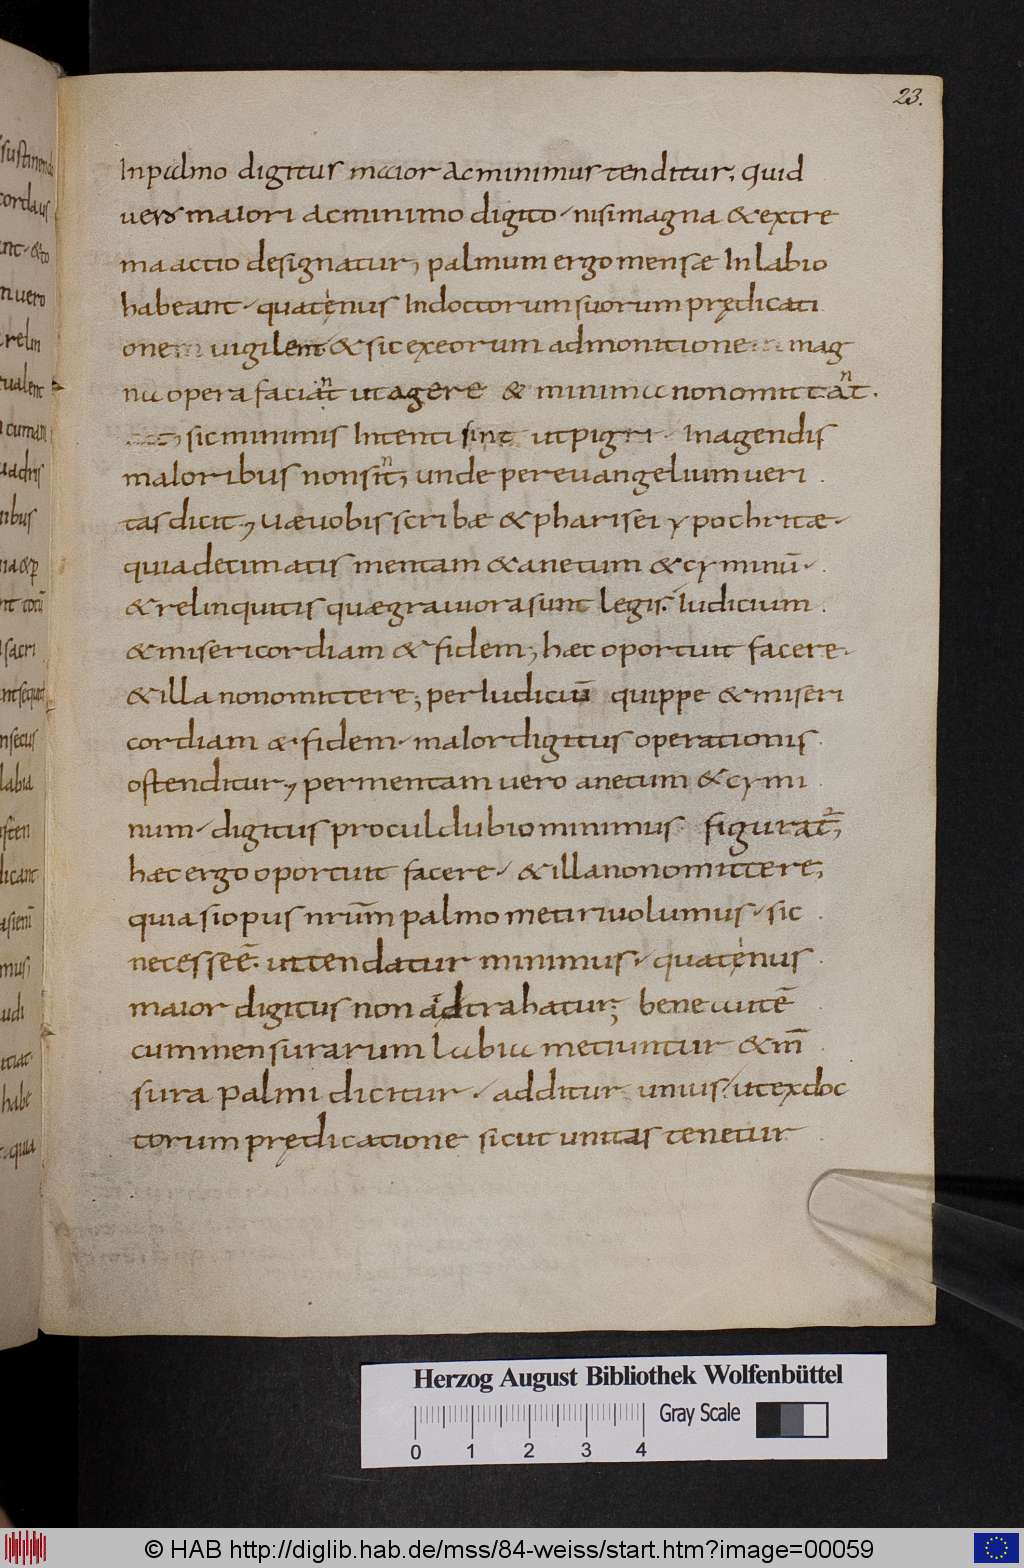 23.
Inpalmo digitus maior acminimus tenditur, quid
vero maiori acminimo digito nisi magna &extre
ma actio designatur, palmum ergo mensæ Inlabio
habeant quatenus Indoctorum suorum prędicati
onem uigilent & sic exeorum admonitione mag
na opera faciant ut agere & minima non omittant.
sic minimis Intenti sint ut pigri Inagendis
maioribus non sint, unde per euangelium veri
tas dicit, Væ uobis scribæ & pharisei ypochritæ
quia decimatis mentam & anetum & cyminū
& relinquitis quæ grauiora sunt legis. Iudicium
& misericordiam & fidem, hæc oportuit facere
& illa non omittere; per Iudiciū quippe & miseri
cordiam & fidem maior digitus operationis
ostenditur, per mentam vero anetum & cymi
num digitus procul dubio minimus figurat̄,
hæc ergo oportuit facere & illa non omittere,
quia si opus nrūm palmo metiri uolumus sic
necesse ē. ut tendatur minimus quatenus
maior digitus non adtrahatur; bene autē
cum mensurarum labia metiuntur & m̄
sura palmi dicitur additur unius, ut ex doc
torum prędicatione sicut unitas tenetur
Herzog August Bibliothek Wolfenbüttel
Gray Scale
0 1 2 3 4
© HAB http://diglib.hab.de/mss/84-weiss/start.htm?image=00059